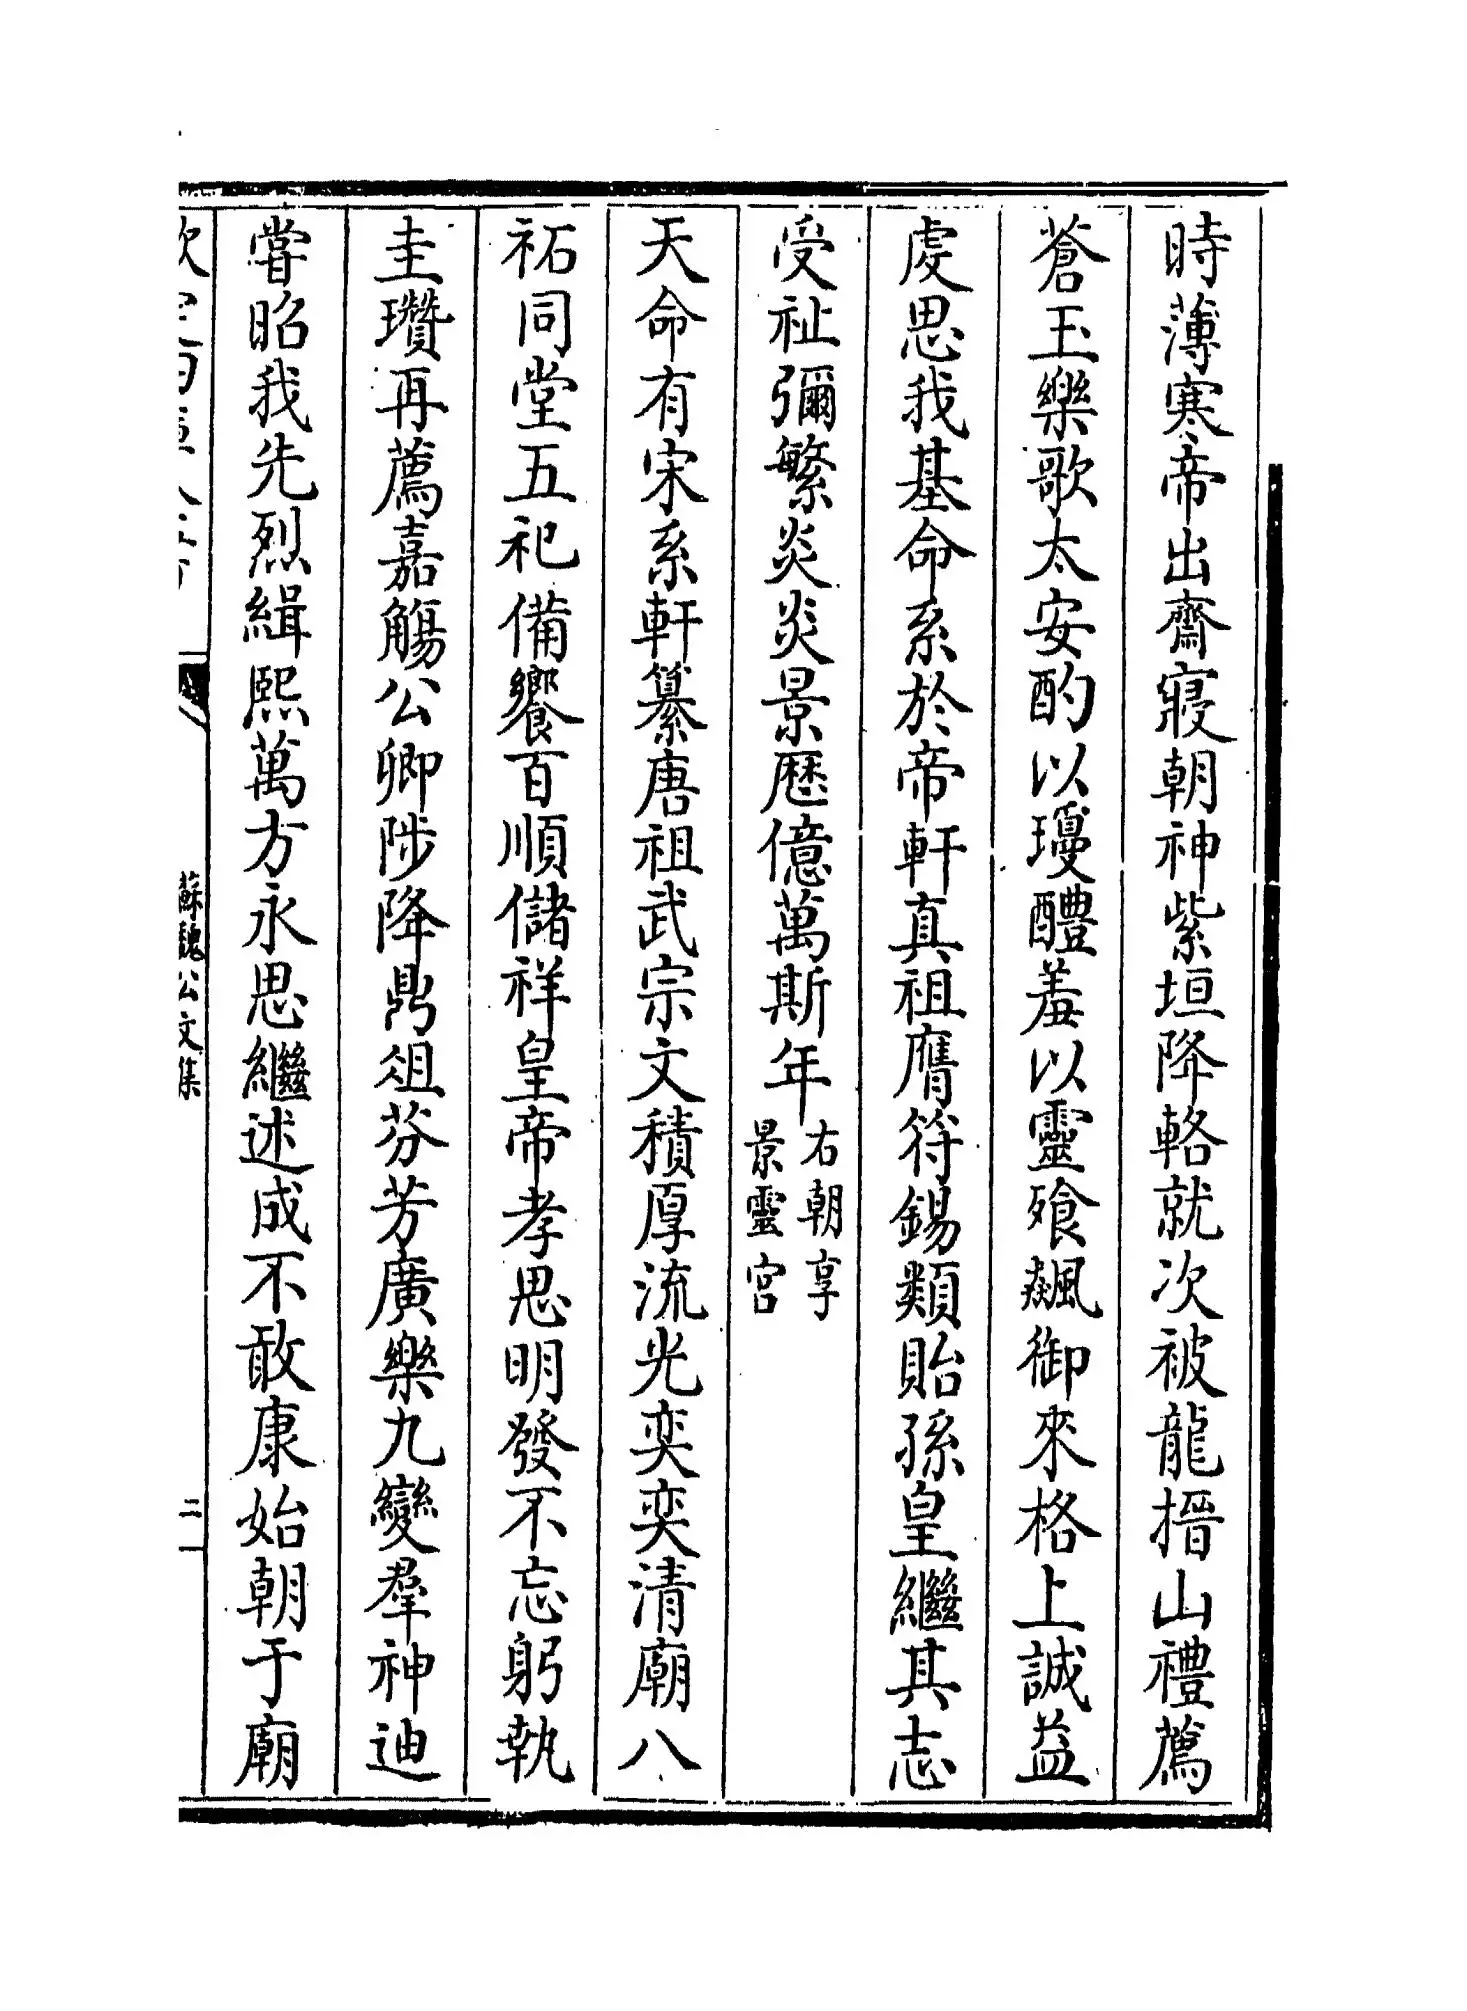 時薄寒帝出齋寢朝神紫垣降輅就次被龍搢山禮薦
蒼玉樂歌太安酌以瓊醴羞以靈飱飆御來格上誠益
虔思我基命系於帝軒真祖膺符錫類貽孫皇繼其志
受祉彌繁炎炎景厯億萬斯年
右朝享
景靈宮
天命有宋系軒纂唐祖武宗文積厚流光奕奕清廟八
祏同堂五祀備饗百順儲祥皇帝孝思明發不忘躬執
圭瓚再薦嘉觴公卿陟降鼎俎芬芳廣樂九變羣神迪
嘗昭我先烈緝熙萬方永思繼述成不敢康始朝于廟
蘇魏公文集
二